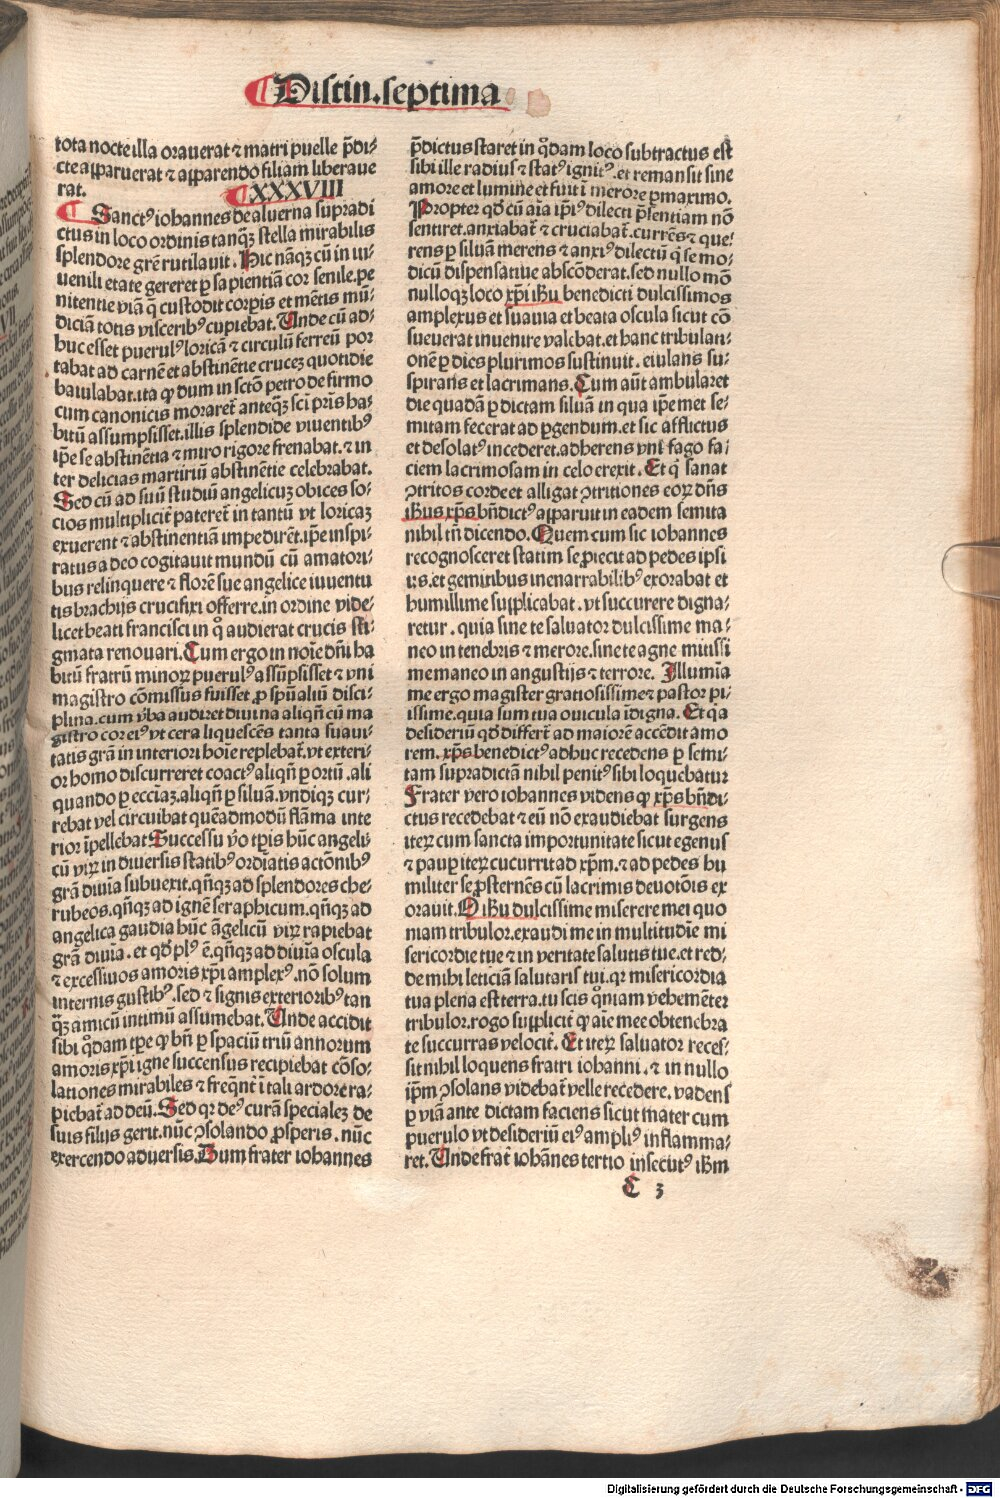 Distin. septima
tota nocte illa orauerat ⁊ matri puelle p̄di⸗
cte apparuerat ⁊ apparendo filiam liberaue
rat.
XXXVIII
Sanctꝰ iohannes de aluerna supradi
ctus in loco ordinis tanqᷓꝫ stella mirabilis
splendore grē rutilauit. Hic nāqꝫ cū in iu⸗
uenili etate gereret ꝑ sapientiā cor senile. pe
nitentie viā qͥ custodit corꝑis et mētis mū⸗
diciā totis visceribꝰ cupiebat. Vnde cū ad⸗
huc esset puerulꝰ loricā ⁊ circulū ferreū por
tabat ad carnē et abstinētie cruceꝫ quotidie
baiulabat. ita ꝙ dum in sctō petro de firmo
cum canonicis moraret̄ anteqᷓꝫ sci pr̄is ha⸗
bitū assumpsisset. illis splendide viuentibꝰ
ip̄e se abstinētia ⁊ miro rigore frenabat. ⁊ in
ter delicias martiriū abstinētie celebrabat.
Sed cū ad suū studiū angelicuꝫ obices so⸗
cios multiplicit̄ pateret̄ in tantū vt loricaꝫ
exuerent ⁊ abstinentiā impedirēt. ip̄e inspi⸗
ratus a deo cogitauit mundū cū amatori⸗
bus relinquere ⁊ florē sue angelice iuuentu
tis brachijs crucifixi offerre. in ordine vide⸗
licet beati francisci in qͦ audierat crucis sti⸗
gmata renouari. Cum ergo in noīe dn̄i ha
bitū fratrū minoꝝ puerulꝰ assūpsisset ⁊ vni
magistro cōmissus fuisset ꝓ spūaliū disci⸗
plina. cum v̄ba audiret diuina aliqn̄ cū ma
gistro cor eiꝰ vt cera liquescēs tanta suaui⸗
tatis grā in interiori hoīe replebat̄. vt exteri⸗
or homo discurreret coactꝰ aliqn̄ ꝑ ortū. ali
quando ꝑ eccīaꝫ. aliqn̄ ꝑ siluā. vndiqꝫ cur⸗
rebat vel circuibat queadmodū flāma inte
rior īpellebat. Successu v̄o tꝑis hūc angeli⸗
cū viꝝ in diuersis statibꝰ ordīatis actōnibꝰ
grā diuīa subuexit. qn̄qꝫ ad splendores che⸗
rubeos. qn̄qꝫ ad ignē seraphicum. qn̄qꝫ ad
angelica gaudia hūc āgelicū viꝝ rapiebat
grā diuīa. et qd̓ plꝰ ē. qn̄qꝫ ad diuīa oscula
⁊ excessiuos amoris xp̄i amplexꝰ. nō solum
internis gustibꝰ. sed ⁊ signis exterioribꝰ tan
qᷓꝫ amicū intimū assumebat. Vnde accidit
sibi qͦdam tꝑe ꝙ bn̄ ꝑ spaciū triū annorum
amoris xp̄i igne succensus recipiebat cōso⸗
lationes mirabiles ⁊ freqn̄t̄ ī tali ardore ra⸗
piebat̄ ad deū. Sed qꝛ deꝰ curā specialeꝫ de
suis filijs gerit. nūc ꝯsolando ꝓsperis. nūc
exercendo aduersis. Dum frater iohannes
p̄dictus staret in qͦdam loco subtractus est
sibi ille radiusꝰ ⁊ statꝰ ignitꝰ. et remansit sine
amore et lumine et fuit ī merore ꝑmaximo.
Propter qd̓ cū aīa ip̄iꝰ dilecti p̄sentiam nō
sentiret. anxiabat̄ ⁊ cruciabat̄. currēs ⁊ que⸗
rens ꝑ siluā merens ⁊ anxiꝰ dilectū qͥ se mo⸗
dicū dispensatiue abscōderat. sed nullo mō
nulloqꝫ loco xp̄i ihu benedicti dulcissimos
amplexus et suauia et beata oscula sicut cō
sueuerat inuenire valebat. et hanc tribulati⸗
onē ꝑ dies plurimos sustinuit. eiulans su⸗
spirans et lacrimans. Cum aūt ambularet
die quadā ꝑ dictam siluā in qua ip̄emet se⸗
mitam fecerat ad ꝑgendum. et sic afflictus
et desolatꝰ incederet. adherens vni fago fa⸗
ciem lacrimosam in celo erexit. Et qͥ sanat
ꝯtritos corde et alligat ꝯtritiones eoꝝ dn̄s
ihus xp̄s bn̄dictꝰ apparuit in eadem semita
nihil tn̄ dicendo. Quem cum sic iohannes
recognosceret statim se proiecit ad pedes ipsi
us. et gemitibus inenarrabilibꝰ exorabat et
humillime supplicabat. vt succurere digna⸗
retur. quia sine te saluator dulcissime ma⸗
neo in tenebris ⁊ merore. sine te agne mitissi
me maneo in angustijs ⁊ terrore. Illumīa
me ergo magister gratiosissime ⁊ pastor pi⸗
issime. quia sum tua ouicula īdigna. Et qꝛ
desideriū qd̓ differt̄ ad maiorē accēdit amo
rem. xp̄s benedictꝰ adhuc recedens ꝑ semi⸗
tam supradictā nihil penitꝰ sibi loquebatur
Frater vero iohannes videns ꝙ xp̄s bn̄di⸗
ctus recedebat ⁊ eū nō exaudiebat surgens
iteꝝ cum sancta importunitate sicut egenus
⁊ pauꝑ iteꝝ cucurrit ad xp̄m. ⁊ ad pedes hu
militer se ꝓsternēs cū lacrimis deuotōis ex
orauit. O ihu dulcissime miserere mei quo
niam tribulor. exaudi me in multitudie mi
sericordie tue ⁊ in veritate salutis tue. et red⸗
de mihi leticiā salutaris tui. qꝛ misericordia
tua plena est terra. tu scis qͦniam vehemēter
tribulor. rogo supplicit̄ ꝙ aīe mee obtenebra
te succurras velocit̄. Et iteꝝ saluator reces⸗
sit nihil loquens fratri iohanni. ⁊ in nullo
ip̄m ꝯsolans videbat̄ velle recedere. vadens
ꝑ viā ante dictam faciens sicut mater cum
puerulo vt desideriū eiꝰ ampliꝰ inflamma⸗
ret. Vnde frat̄ iohānes tertio insecutꝰ ihm
C 3
Digitalisierung gefördert durch die Deutsche Forschungsgemeinschaft - DFG